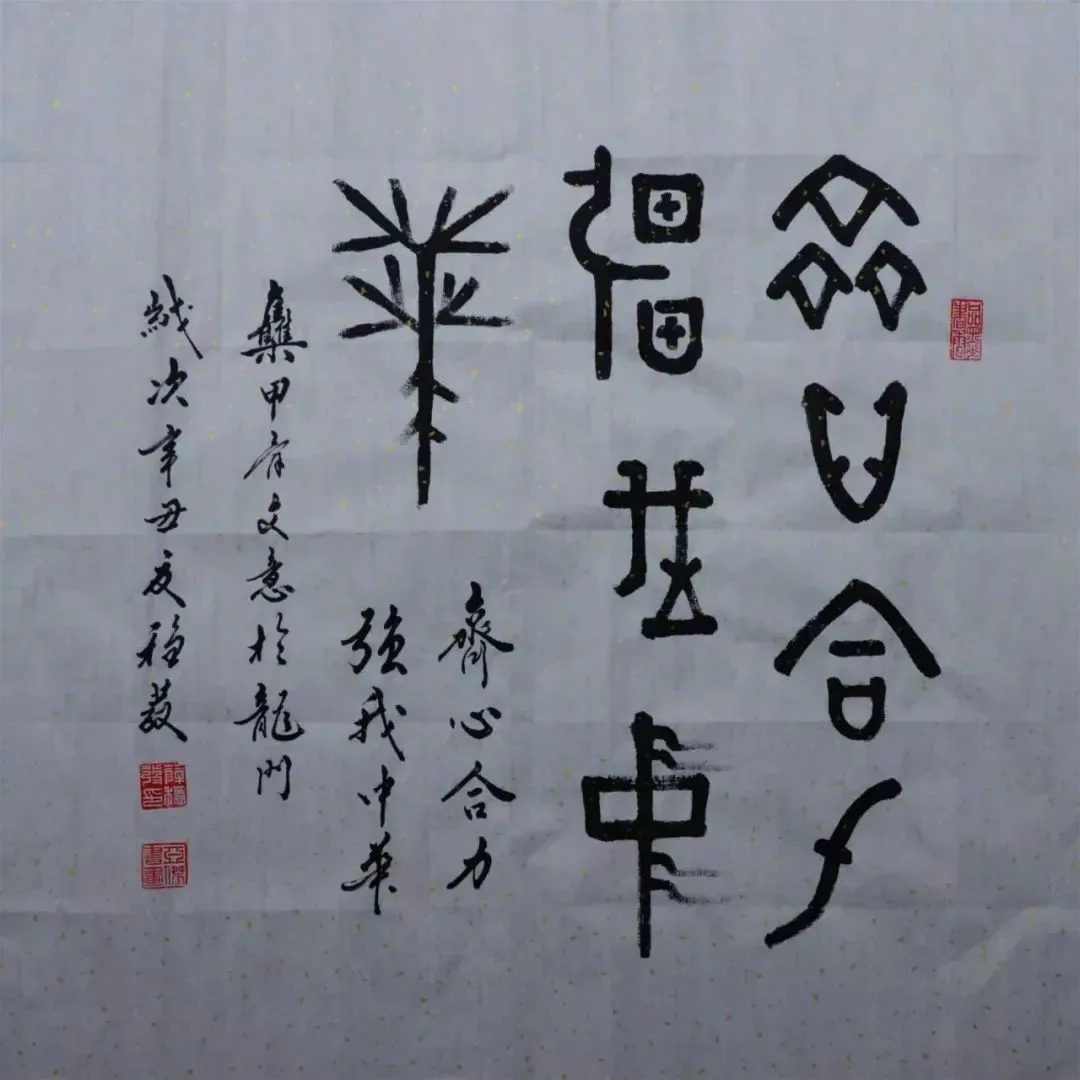 齊心合力
彊我中
華
齊心合力
強我中華
集甲骨文意於龍門
歲次辛丑夏穩發